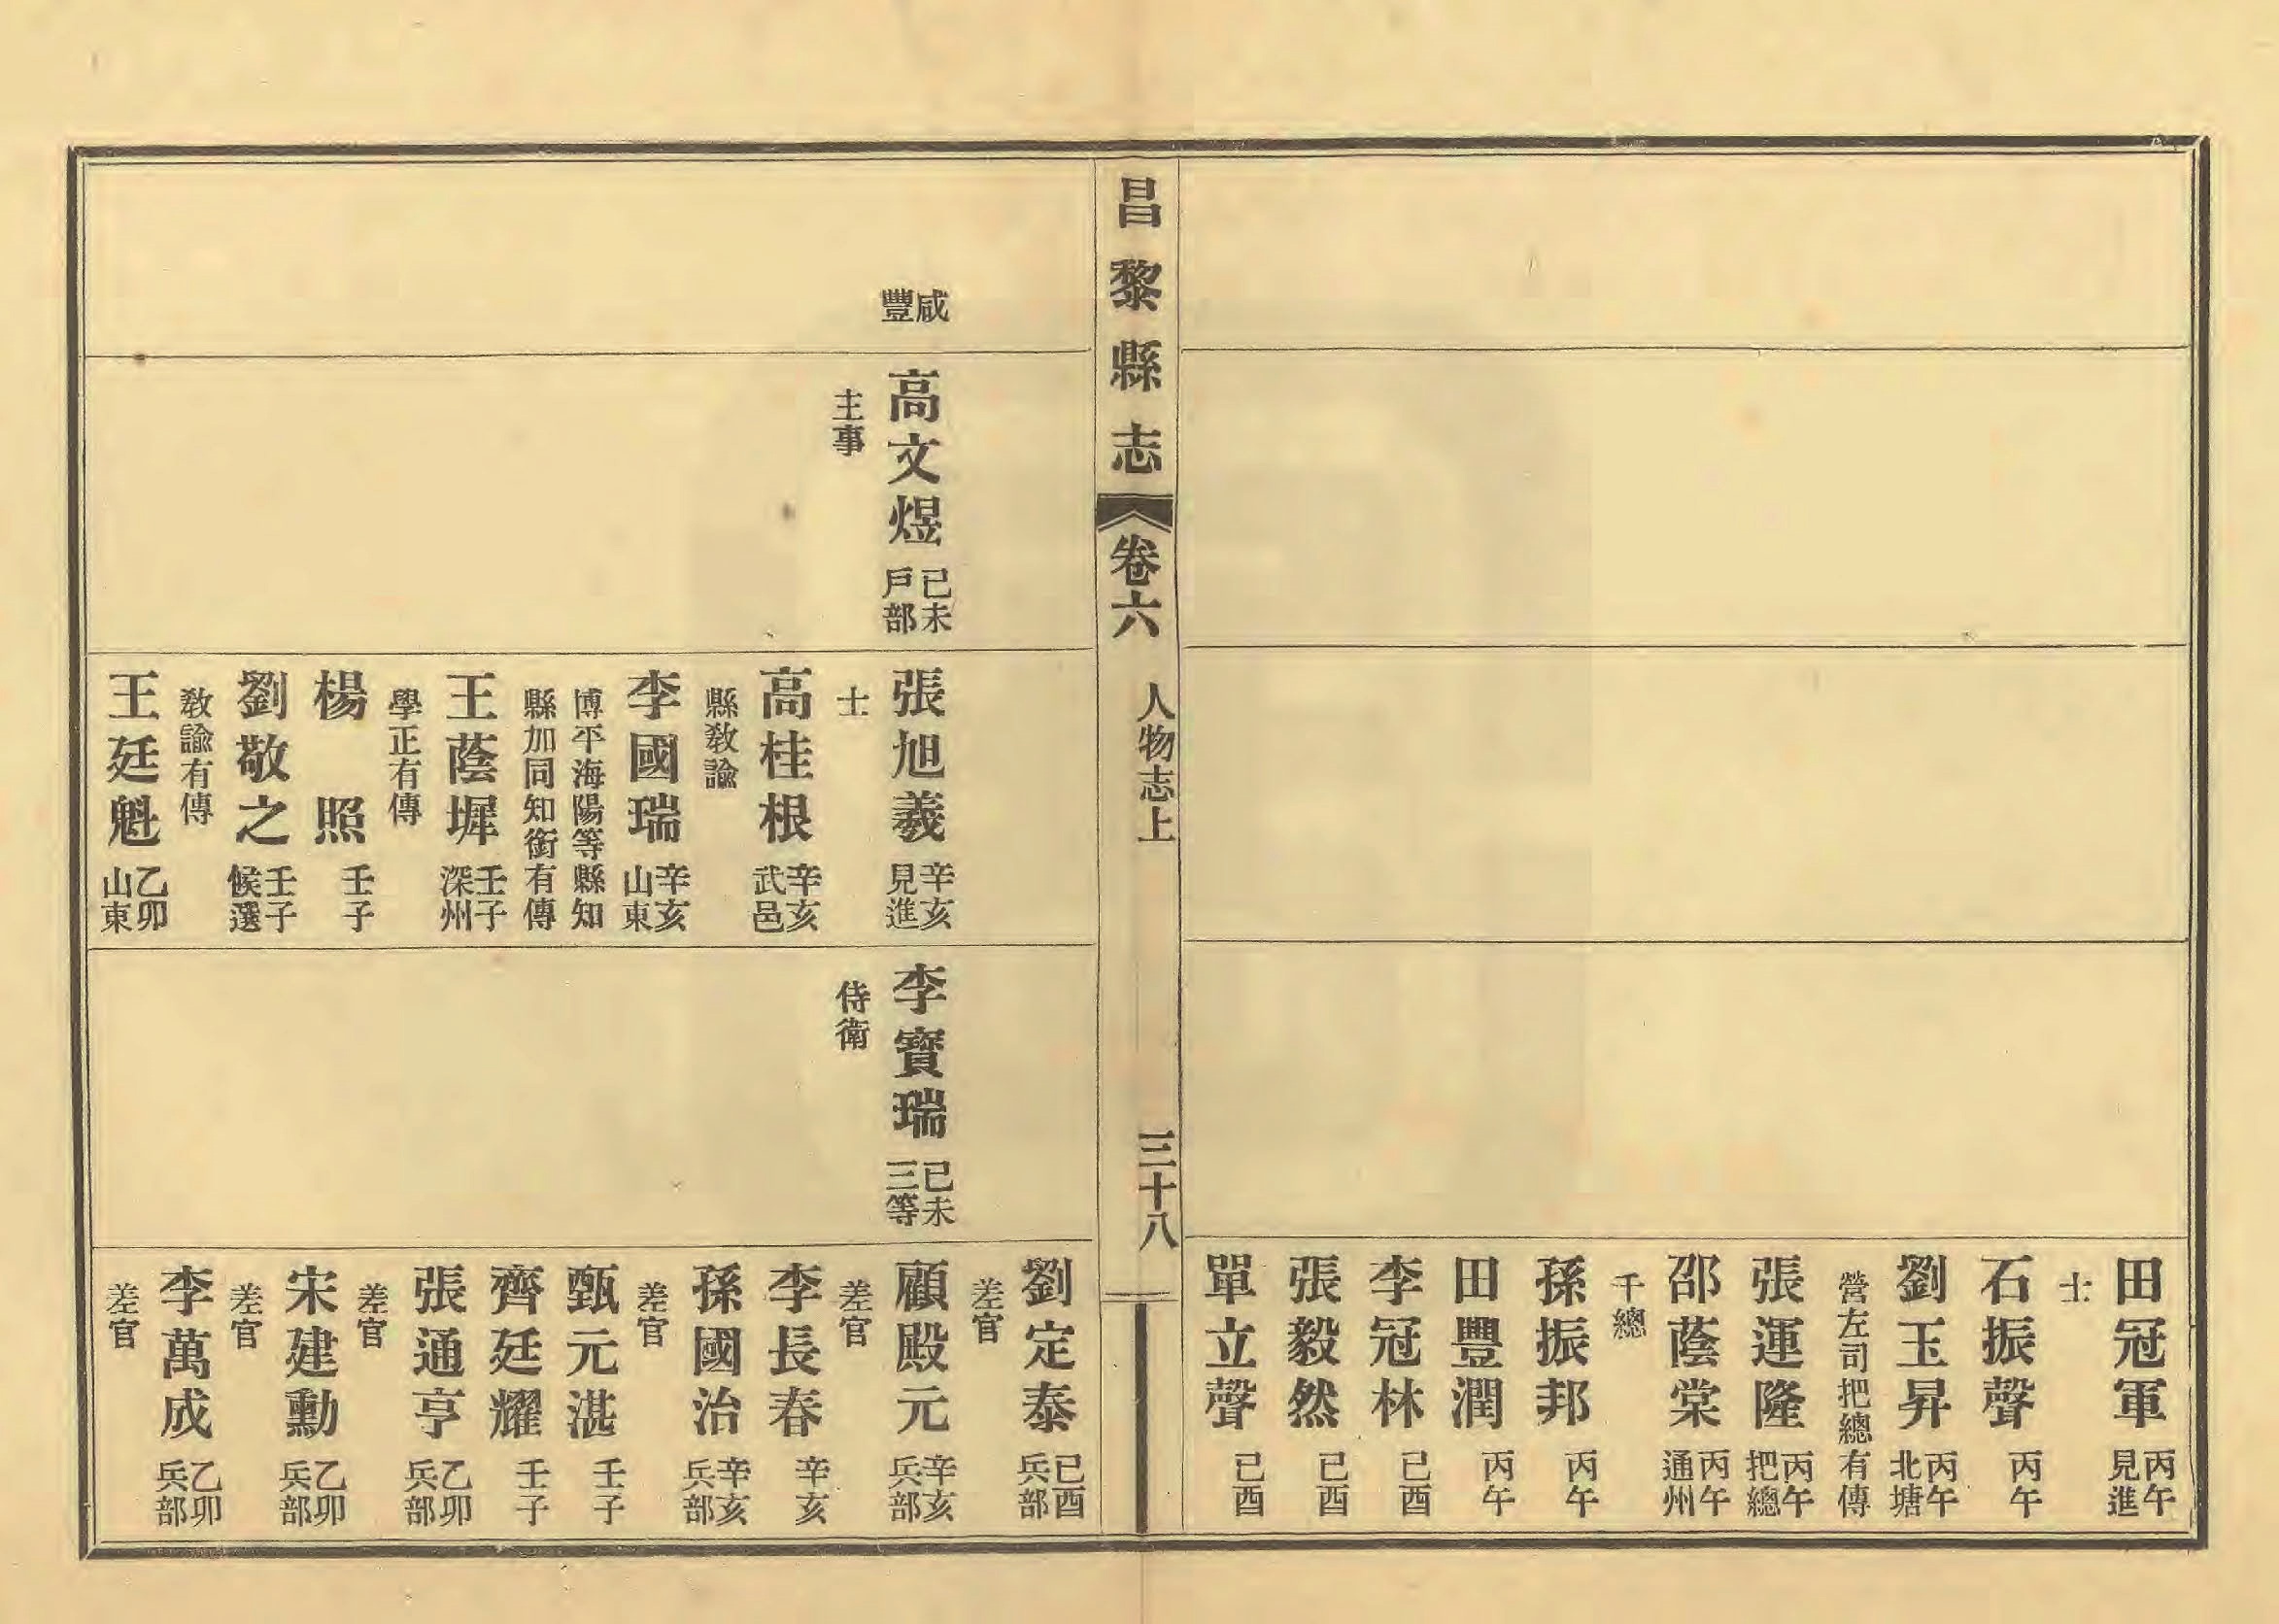 田冠軍 丙午見進
士
石振聲 丙午
劉玉昇 丙午北塘
營左司把總有傳
張運隆 丙午把總
邵蔭棠 丙午通州
千總
孫振邦 丙午
田豐潤 丙午
李冠林 已酉
張毅然 已酉
單立聲 已酉
昌黎縣志 卷六 人物志上 三十八
咸豐
高文煜 已未戶部
主事
張旭羲 辛亥見進
士
高桂根 辛亥武邑
縣教諭
李國瑞 辛亥山東
博平海陽等縣知
縣加同知銜有傳
王蔭墀 壬子深州
學正有傳
楊照 壬子
劉敬之 壬子候選
教諭有傳
王廷魁 乙卯山東
李寶瑞 已未三等
侍衛
劉定泰 已酉兵部
差官
顧殿元 辛亥兵部
差官
李長春 辛亥
孫國治 辛亥兵部
差官
甄元湛 壬子
齊廷耀 壬子
張通亨 乙卯兵部
差官
宋建勳 乙卯兵部
差官
李萬成 乙卯兵部
差官